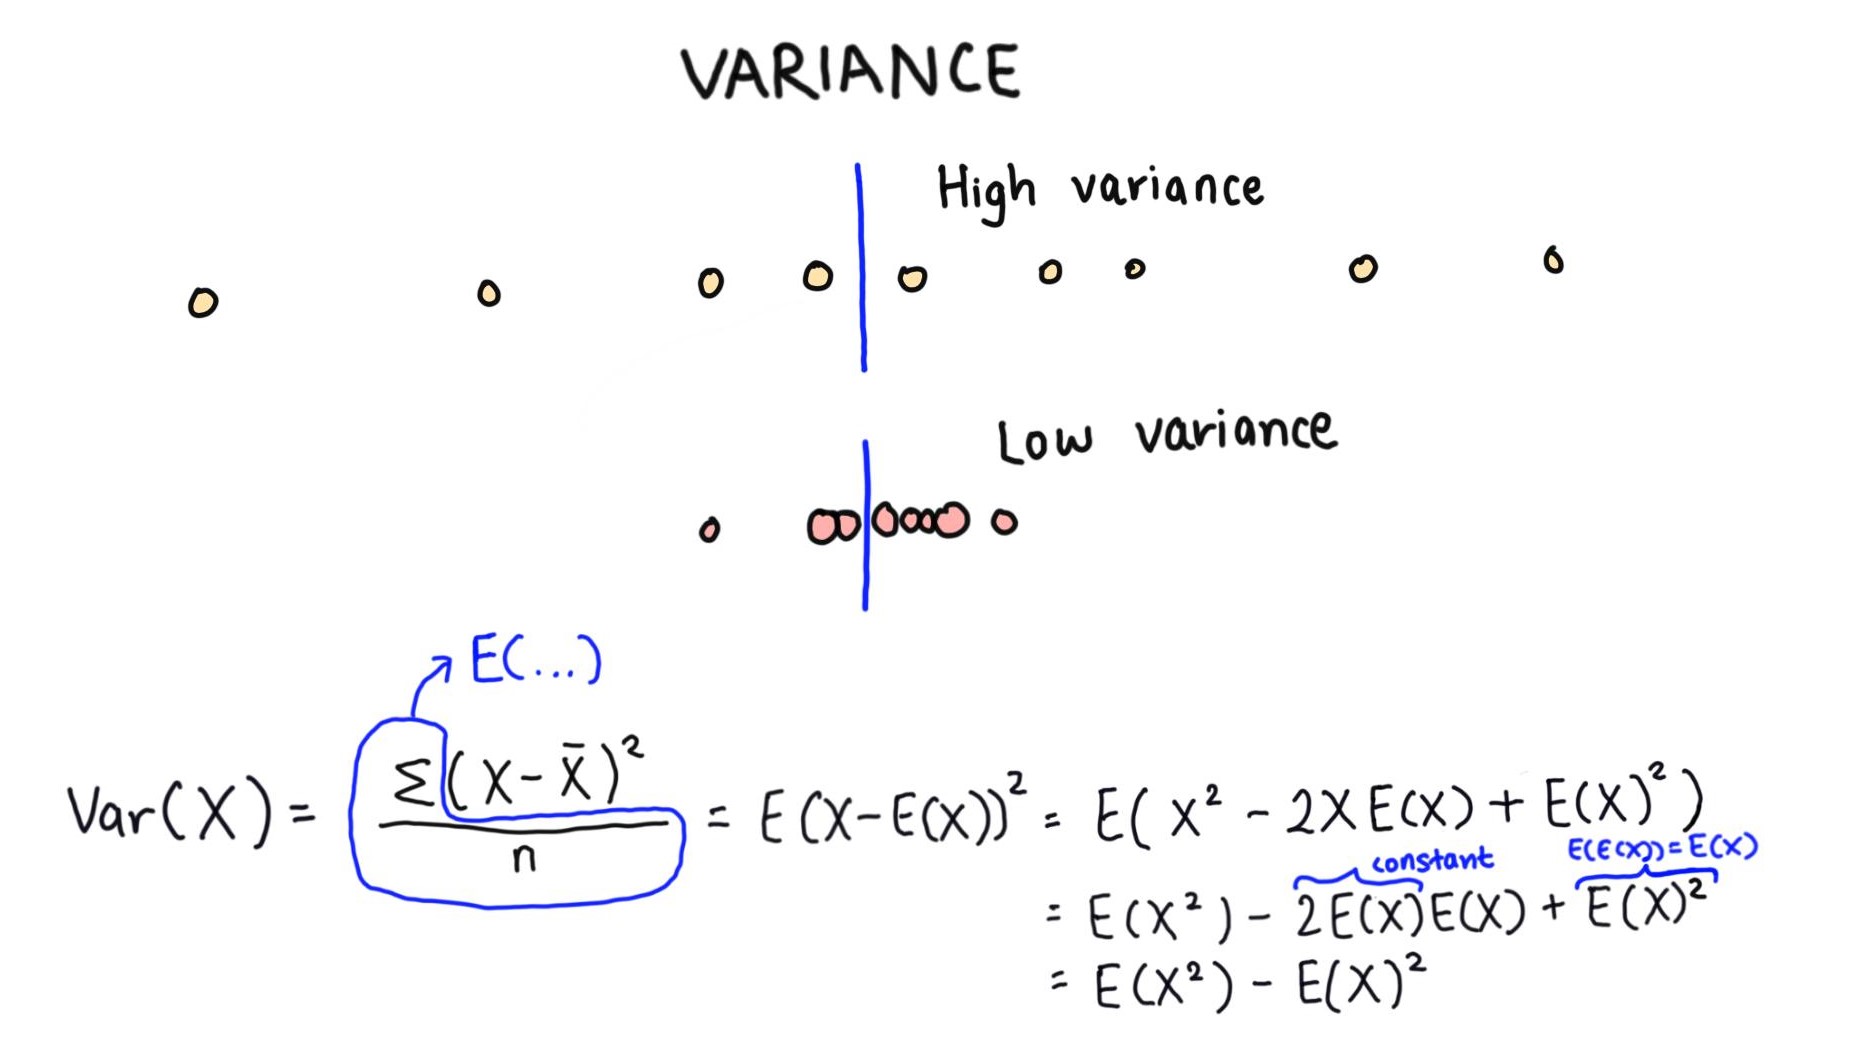 VARIANCE
High variance
Low variance
E(...)
Var(X) = Σ(X-X̄)² / n = E(X-E(X))² = E(X² - 2XE(X) + E(X)²)
constant E(E(X))=E(X)
= E(X²) - 2E(X)E(X) + E(X)²
= E(X²) - E(X)²